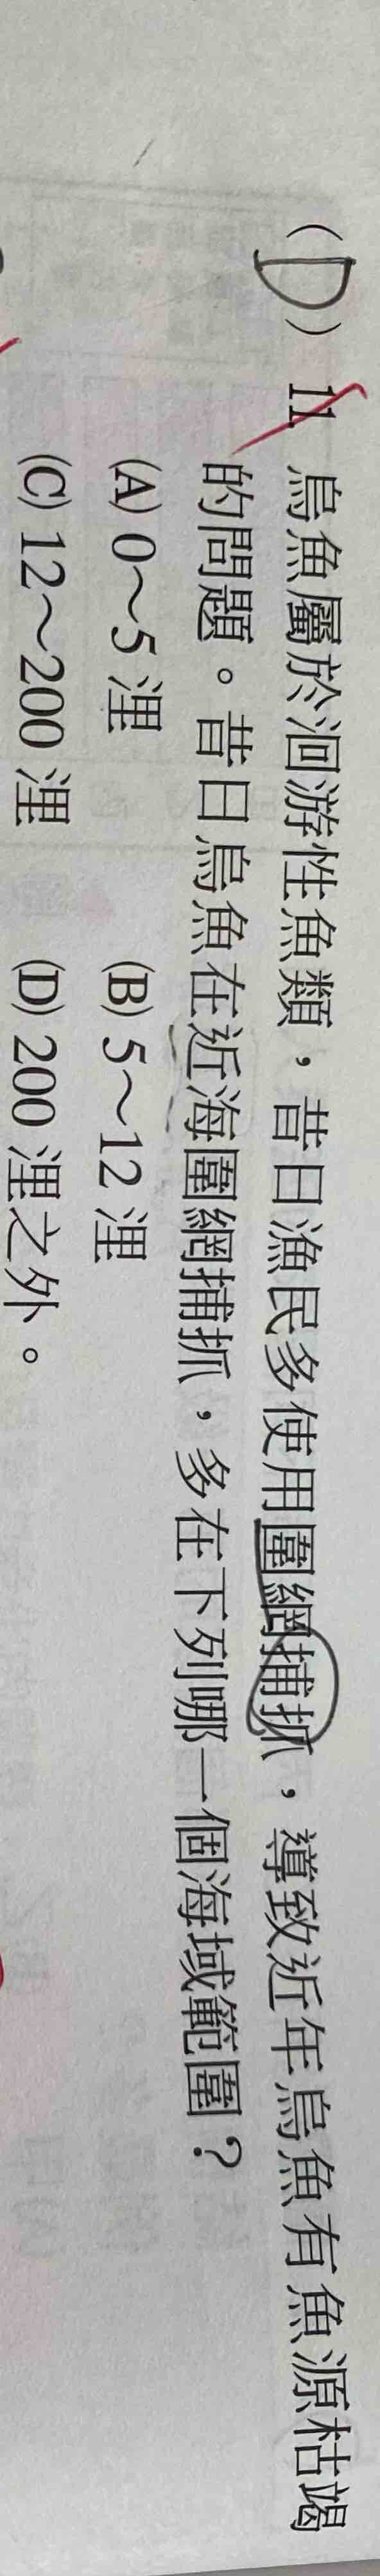 (D) 11. 烏魚屬於洄游性魚類，昔日漁民多使用圍網捕抓，導致近年烏魚有魚源枯竭
的問題。昔日烏魚在近海圍網捕抓，多在下列哪一個海域範圍？
(A) 0～5 浬 (B) 5～12 浬
(C) 12～200 浬 (D) 200 浬之外。